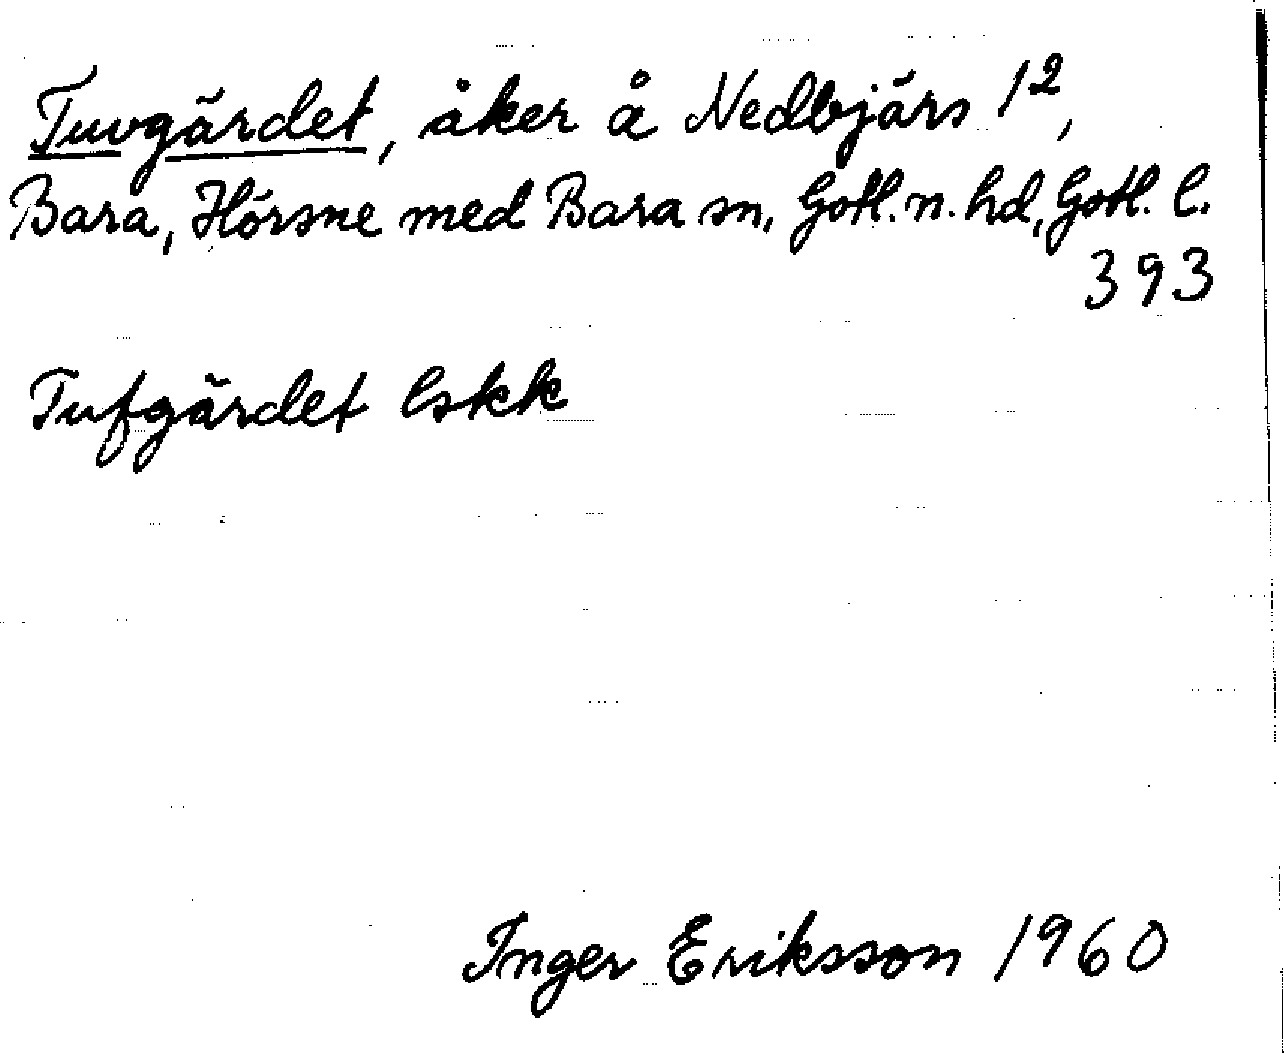 Tuvgärdet, åker å Nedbjärs 1²,
Bara, Hörsne med Bara sn, Gotl. n. hd, Gotl. l.
393
Tufgärdet lskk
Inger Eriksson 1960